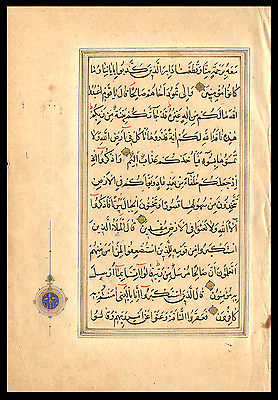 معه برحمة منا وقطعنا دابر الذين كذبوا بآياتنا وما
كانوا مؤمنين والى ثمود اخاهم صالحا قال يا قوم اعبدوا
الله ما لكم من اله غيره قد جاءتكم بينة من ربكم
هذه ناقة الله لكم آية فذروها تأكل في ارض الله ولا
تمسوها بسوء فيأخذكم عذاب اليم واذكروا
اذ جعلكم خلفاء من بعد عاد وبوأكم في الارض
تتخذون من سهولها قصورا وتنحتون الجبال بيوتا فاذكروا
آلاء الله ولا تعثوا في الارض مفسدين قال الملأ الذين
استكبروا من قومه للذين استضعفوا لمن آمن منهم
اتعلمون ان صالحا مرسل من ربه قالوا انا بما ارسل
به مؤمنون قال الذين استكبروا انا بالذي آمنتم به
كافرون فعقروا الناقة وعتوا عن امر ربهم وقالوا